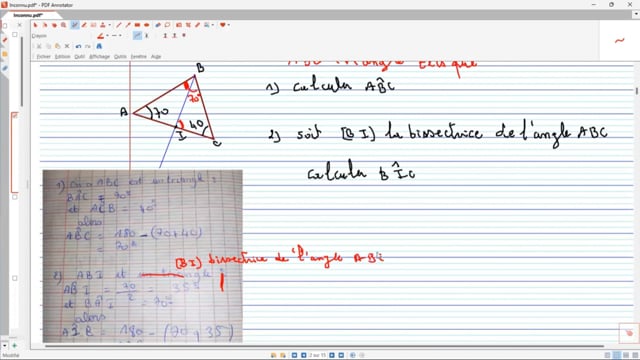 Inconnu.pdf* - PDF Annotator
Fichier Edition Affichage Outils Fenêtre Aide
Inconnu.pdf*
Crayon
ABC triangle tel que
B
70°
A
70
I
40
C
1) Calculer AB̂C
2) soit [BI) la bissectrice de l'angle ABC
Calculer BÎC
1) On a ABC est un triangle :
BÂC = 70°
et AĈB = 40°
alors
AB̂C = 180 - (70+40)
= 70°
[BI) bissectrice de l'angle AB
2) ABI et un triangle :
AB̂I = 70/2 = 35°
et BÂI = 70°
alors
AÎB = 180 - (70 + 35)
2 sur 15